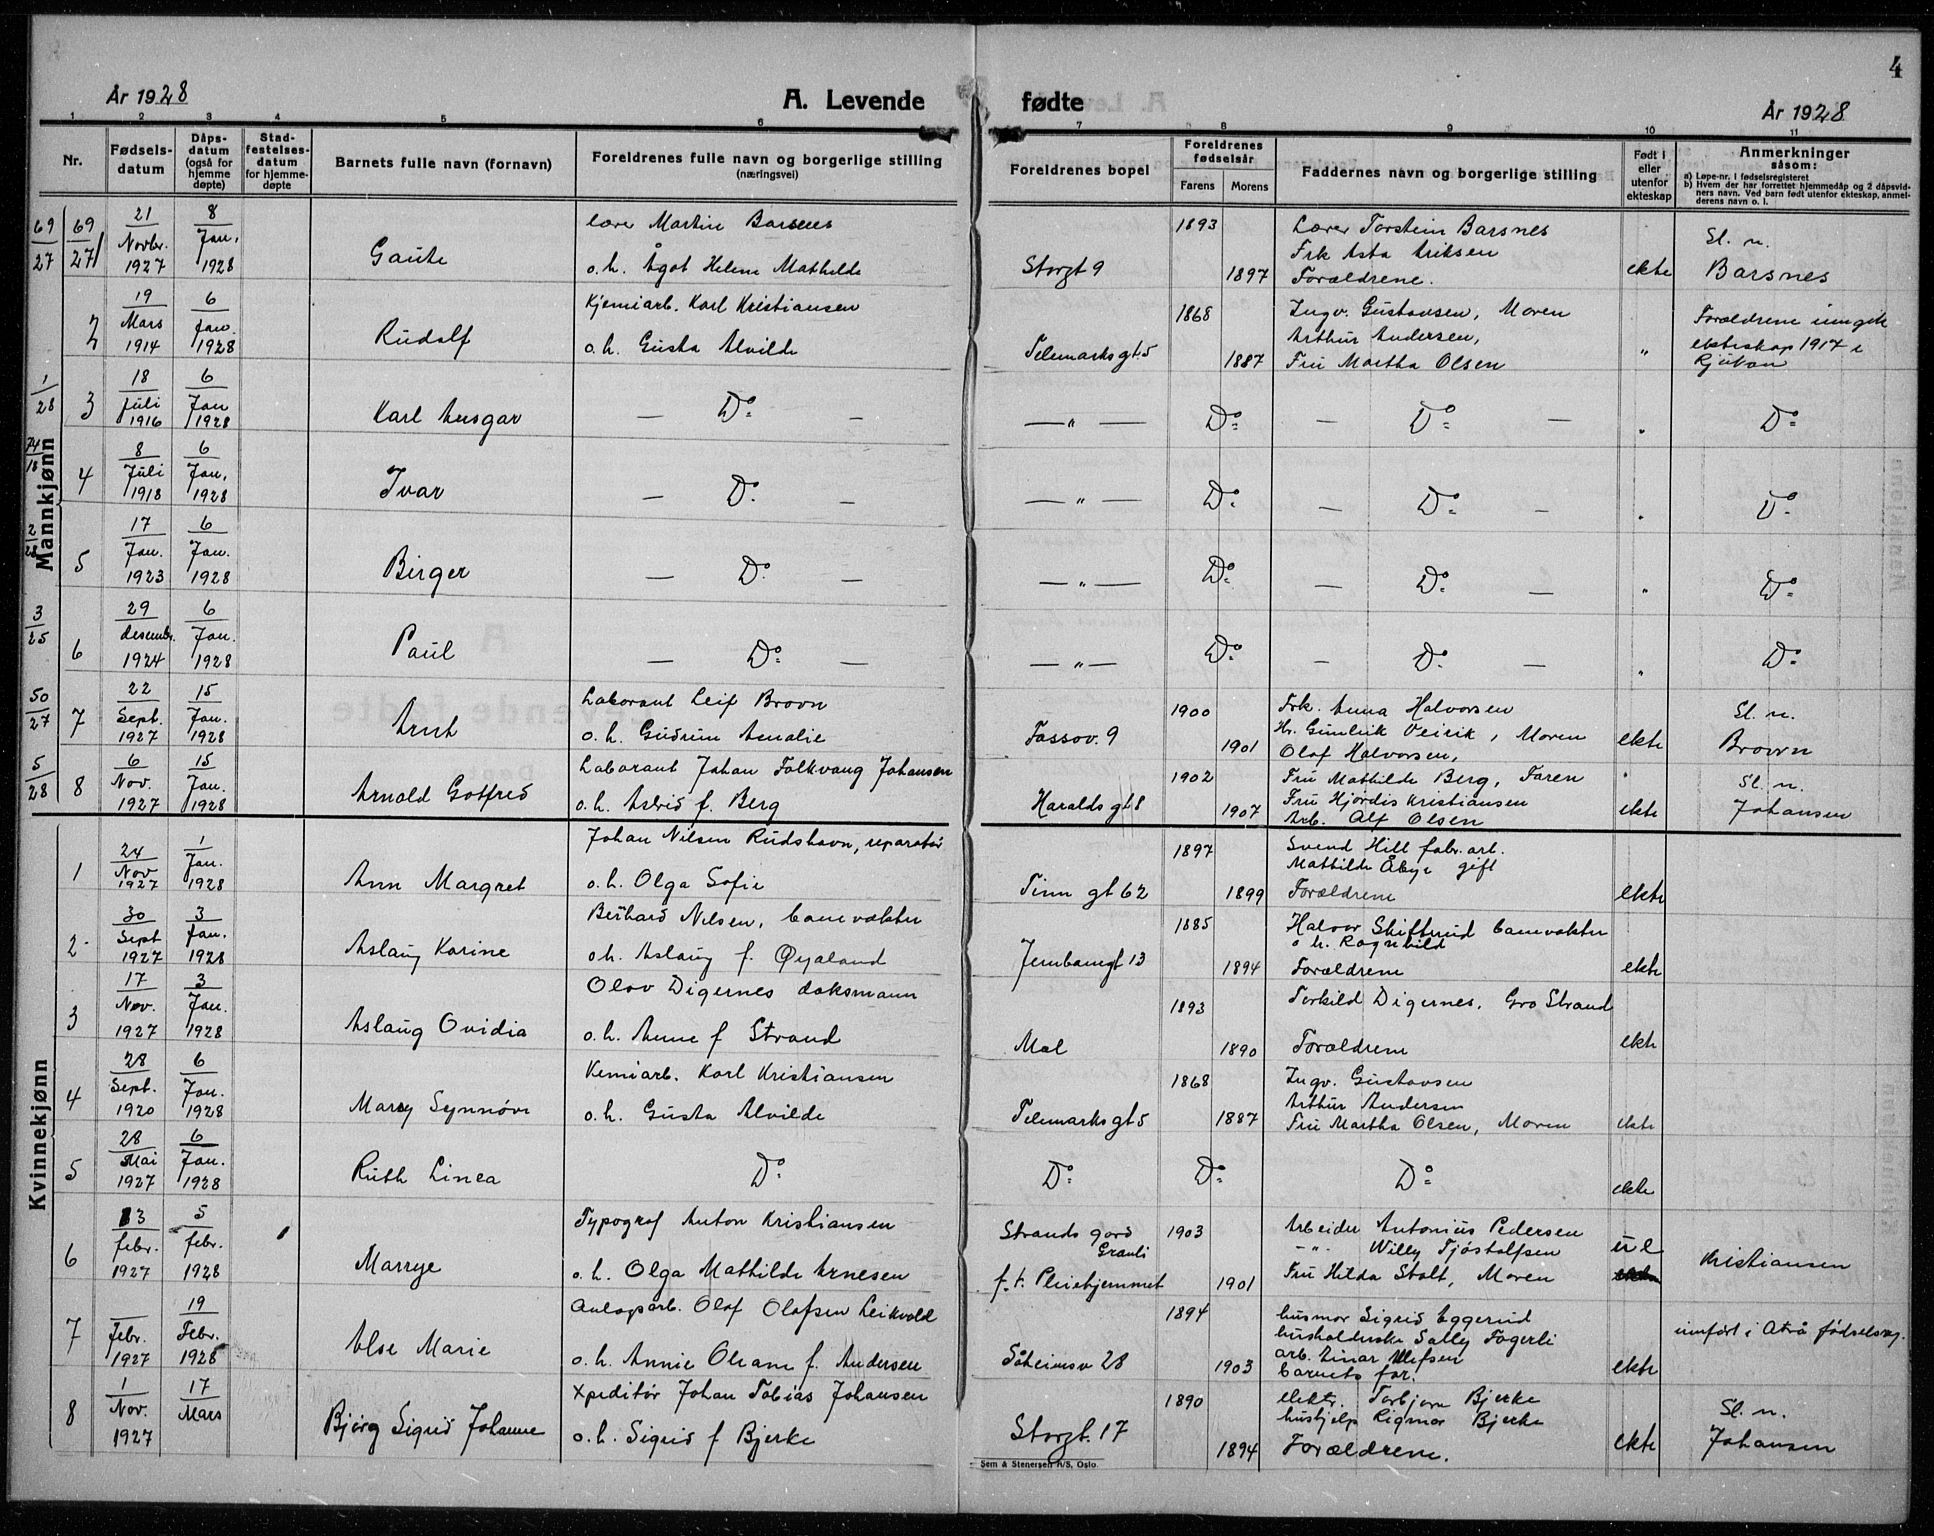 4
År 1928
A. Levende
fødte
År 1928
1 2 3 4 5 6 7 8 9 10 11
Nr.
Fødsels-
datum
Dåps-
datum
(også for
hjemme
døpte)
Stad-
festelses-
datum
for hjemme-
døpte
Barnets fulle navn (fornavn)
Foreldrenes fulle navn og borgerlige stilling
(næringsvei)
Foreldrenes bopel
Foreldrenes
fødselsår
Farens Morens
Faddernes navn og borgerlige stilling
Født i
eller
utenfor
ekteskap
Anmerkninger
såsom:
a) Løpe-nr. i fødselsregisteret
b) Hvem der har forrettet hjemmedåp og 2 dåpsvid-
ners navn. Ved barn født utenfor ekteskap, anmel-
derens navn o. l.
Mannkjønn
69/27 69/27 21 Novbr. 1927 8 Jan. 1928 Gaute
Lærer Martin Barsnes
o. h. Ågot Helene Mathilde
Storgt 9 1893 1897
Lærer Torstein Barsnes
Frk Asta Eriksen
Forældrene.
ekte
Sl. n.
Barsnes
2 19 Mars 1914 6 Jan. 1928 Rudolf
Kjemiarb. Karl Kristiansen
o. h. Gusta Alvilde
Telemarksgt. 5 1868 1887
Ingv. Gustavsen, Moren
Arthur Andersen,
Fru Martha Olsen
"
Forældrene inngik
ekteskap 1917 i
Rjukan
1/28 3 18 Juli 1916 6 Jan 1928 Karl Ansgar
— Do — — " — Do — Do — " Do
74/18 4 8 Juli 1918 6 Jan. 1928 Ivar
— Do — — " — Do — Do — " Do
2/28 5 17 Jan. 1923 6 Jan. 1928 Birger
— Do — — " — Do — Do — " Do
3/25 6 29 desembr. 1924 6 Jan. 1928 Paul
— Do — — " — Do — Do — " Do
50/27 7 22 Sept. 1927 15 Jan. 1928 Arnt
Laborant Leif Brovn
o. h. Gudrun Amalie
Fassov. 9 1900 1901
Frk. Anna Halvorsen
Hr. Gunleik Veirik, Moren
Olaf Halvorsen,
ekte
Sl. n.
Brovn
5/28 8 6 Nov. 1927 15 Jan. 1928 Arnold Gotfred
Laborant Johan Folkvang Johansen
o. h. Astrid f. Berg
Haralds gt 8 1902 1907
Fru Mathilde Berg, Faren
Fru Hjørdis Kristiansen
Arb. Alf Olsen
ekte
Sl. n.
Johansen
Kvinnekjønn
1 24 Nov 1927 1 Jan. 1928 Ann Margret
Johan Nilsen Rudshavn, reparatør
o. h. Olga Sofie
Tinn gt 62 1897 1899
Svend Hill fabr. arb.
Mathilde Åbye gift
Forældrene
ekte
2 30 Sept 1927 3 Jan. 1928 Aslaug Karine
Berhard Nilsen, banevakter
o h. Aslaug f. Øyaland
Jernbanegt 13 1885 1894
Halvor Skifterud banevakter
o h. Ragnhild
Forældrene
ekte
3 17 Nov. 1927 3 Jan. 1928 Aslaug Ovidia
Olav Digernes daksmann
o. h. Anne f Strand
Mæl 1893 1890
Torkild Digernes, Gro Strand
Forældrene
ekte
4 28 Sept. 1920 6 Jan. 1928 Marry Synnøve
Kemiarb. Karl Kristiansen
o. h. Gusta Alvilde
Telemarksgt 5 1868 1887
Ingv. Gustavsen
Arthur Andersen
Fru Martha Olsen, Moren
ekte
5 28 Mai 1927 6 Jan. 1928 Ruth Linea
Do Do Do Do ekte
6 13 febr. 1927 5 febr. 1928 Marrye
Typograf Anton Kristiansen
o. h. Olga Mathilde Arnesen
Strands gård
Grauli
f. t. Pleiehjemmet 1903 1901
Arbeider Antonius Pedersen
— " — Willy Tjøstolfsen
Fru Hilda Stolt, Moren
Kristiansen
7 Febr. 1927 19 Febr. 1928 Else Marie
Anlegsarb. Olaf Olafsen Leikvold
o. h. Annie f. Andersen
Såheimsv 28 1894 1903
husmor Sigrid Eggerud
husholderske Sally Fagerli
arb. Einar Ulefsen
barnets far.
ekte
innført i Atrå fødselsreg.
8 1 Nov. 1927 17 Mars Bjørg Sigrid Johanne
Xpeditør Johan Tobias Johansen
o. h. Sigrid f Bjerke
Storgt. 17 1890 1894
elektr. Torbjørn Bjerke
hushjelp Rigmor Bjerke
Forældrene.
ekte
Sl. n.
Johansen
Sem & Stenersen A/S, Oslo.